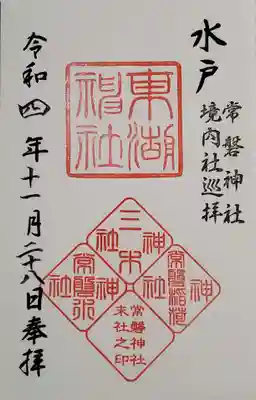 水戸
常磐神社
境内社巡拝
東湖神社
三木神社
常磐稲荷神社
常磐水社
常磐神社
末社之印
令和四年十一月二十八日奉拝